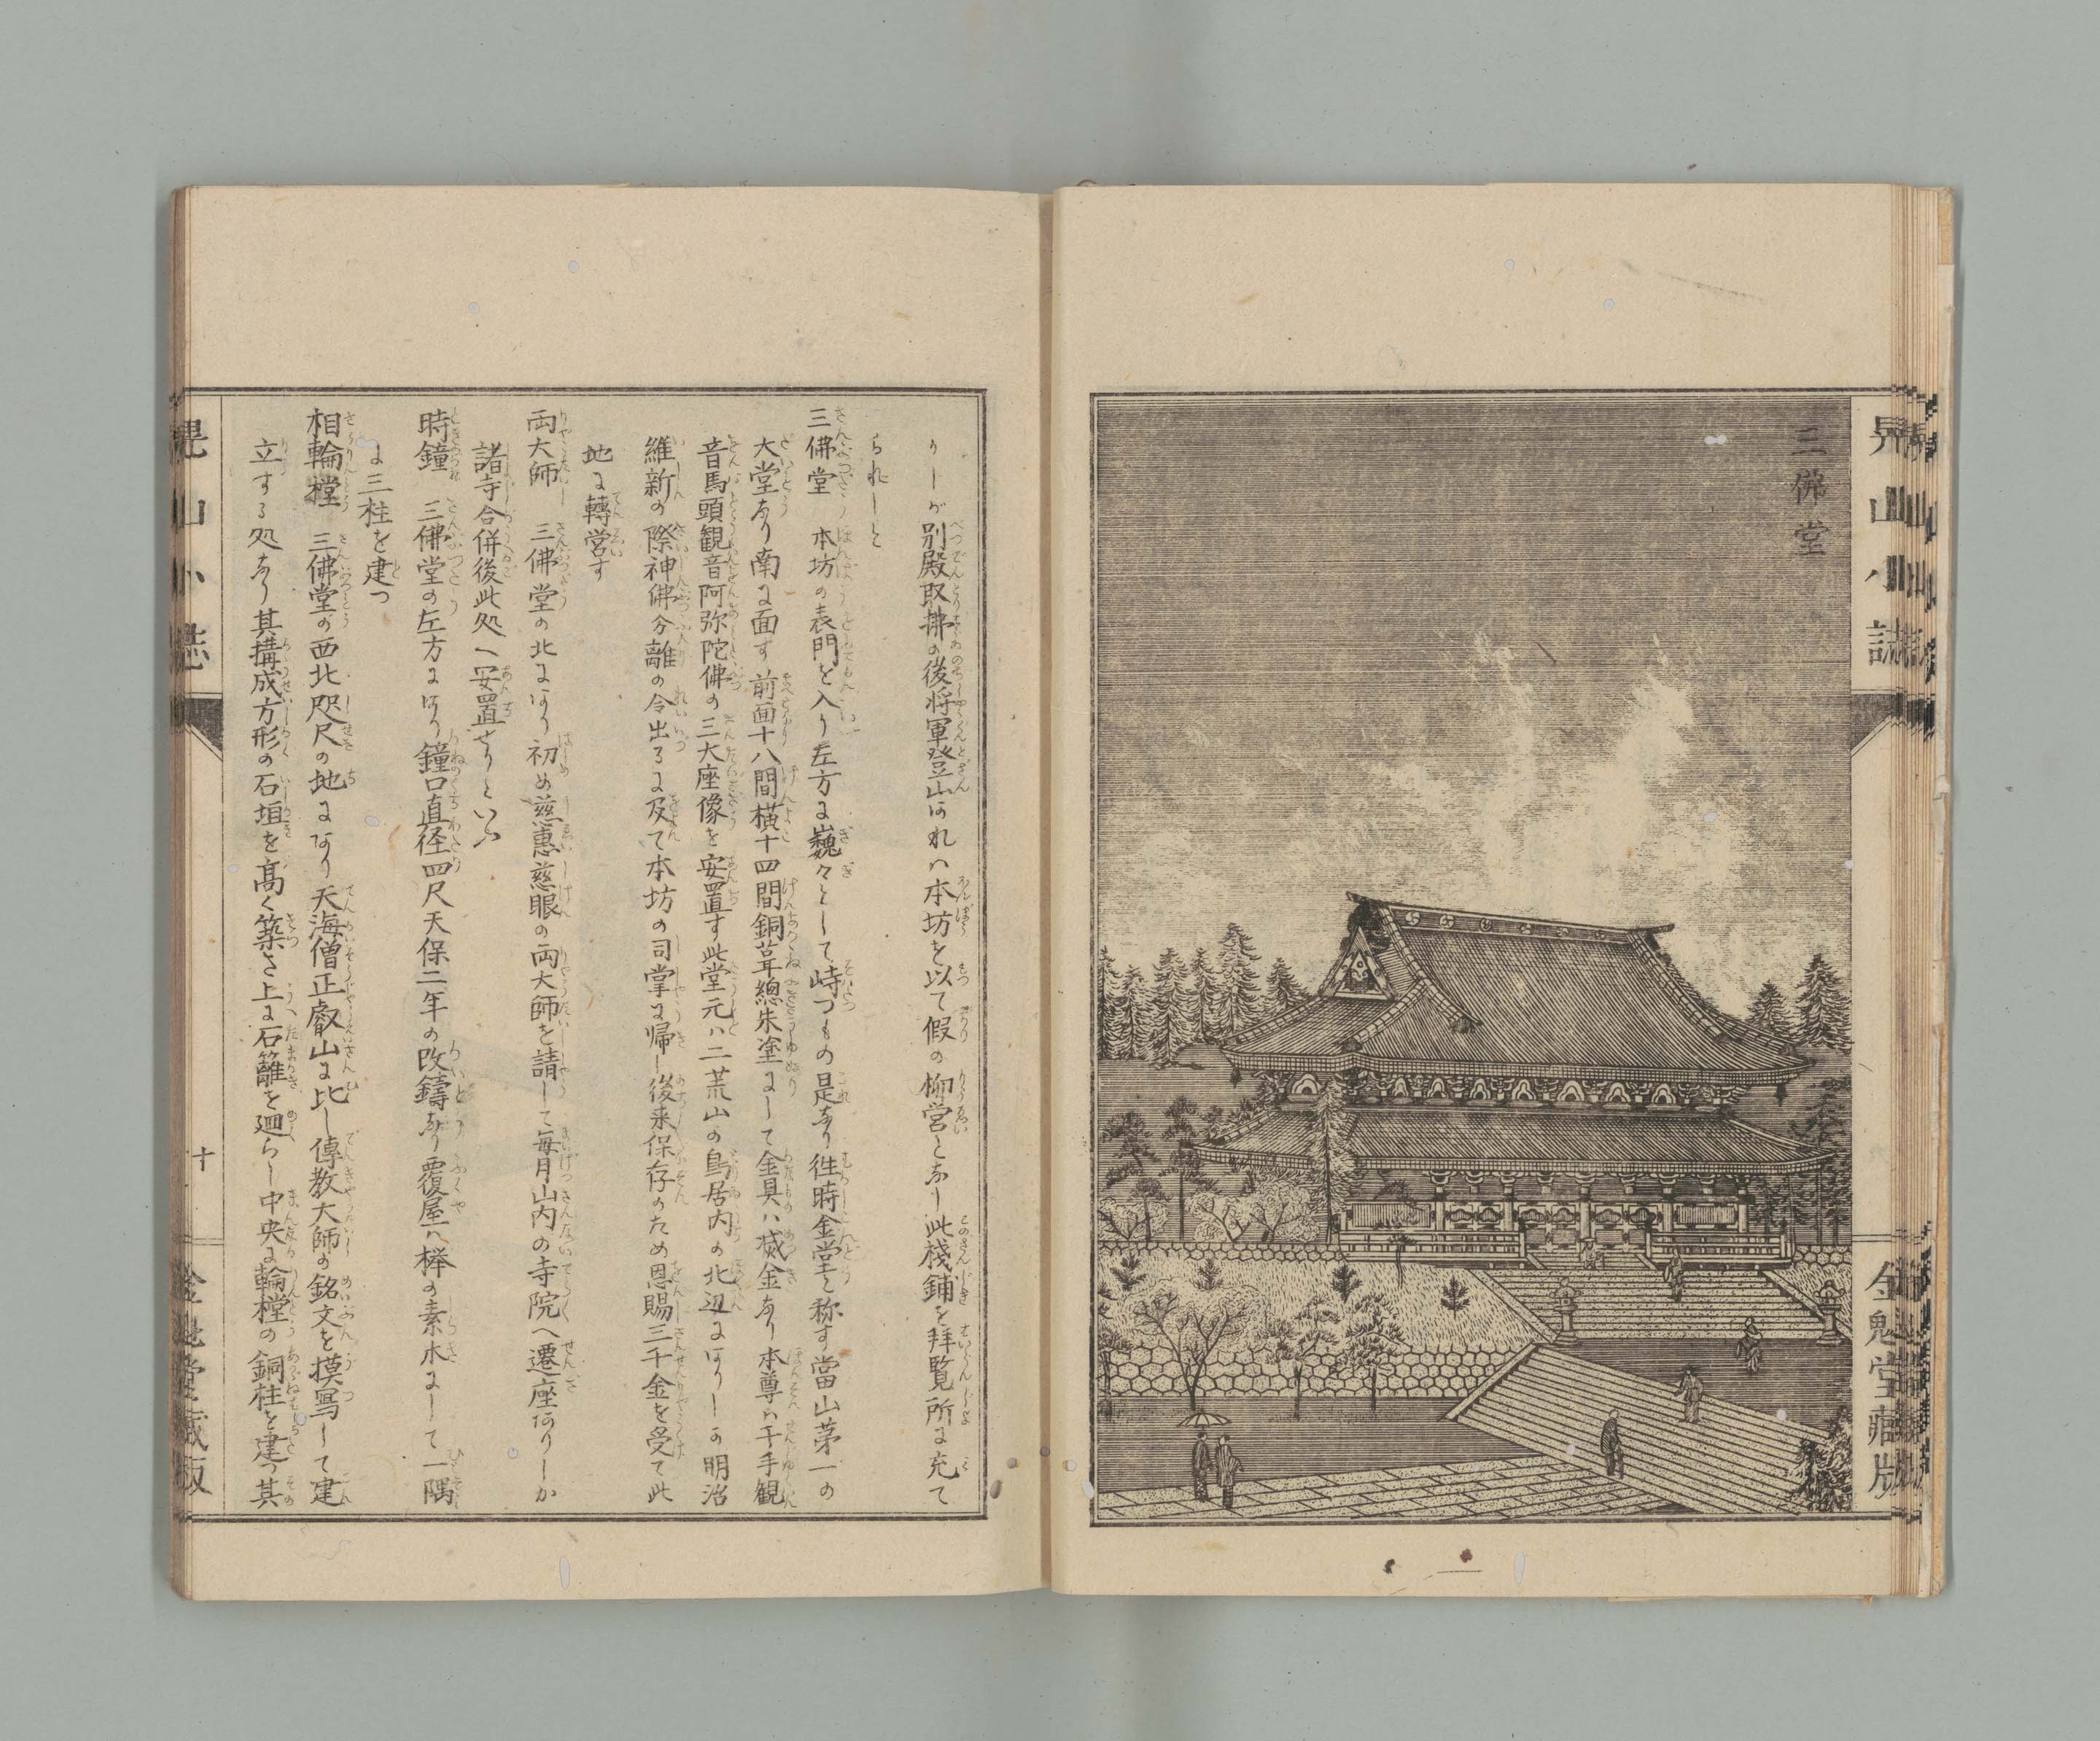 三佛堂
晃山小誌
金魁堂蔵版
りしが別殿取拂の後将軍登山あれハ本坊を以て假の柳営となし此棧鋪を拝覧所に充て
られしと
三佛堂 本坊の表門を入り左方に巍々として峙つもの是なり徃時金堂と称す當山第一の
大堂なり南に面す前面十八間横十四間銅葺總朱塗にして金具ハ滅金なり本尊ハ千手観
音馬頭観音阿弥陀佛の三大座像を安置す此堂元ハ二荒山の鳥居内の北辺にありしか明治
維新の際神佛分離の令出るに及て本坊の司掌に帰し後来保存のため恩賜三千金を受て此
地に轉営す
両大師 三佛堂の北にあり初め慈惠慈眼の両大師を請して毎月山内の寺院へ遷座ありしか
諸寺合併後此処へ安置せりといふ
時鐘 三佛堂の左方にあり鐘口直径四尺天保二年の改鑄なり覆屋ハ欅の素木にして一隅
に三柱を建つ
相輪橖 三佛堂の西北咫尺の地にあり天海僧正叡山に比し傳教大師の銘文を摸寫して建
立する処なり其搆成方形の石垣を高く築き上に石籬を廻らし中央に輪橖の銅柱を建つ其
晃山小誌
十
金魁堂蔵版